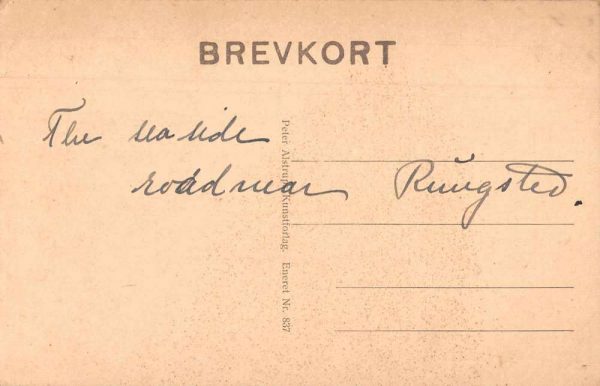 BREVKORT
The seaside
road near Rungsted.
Peter Alstrup, Kunstforlag. Eneret Nr. 837